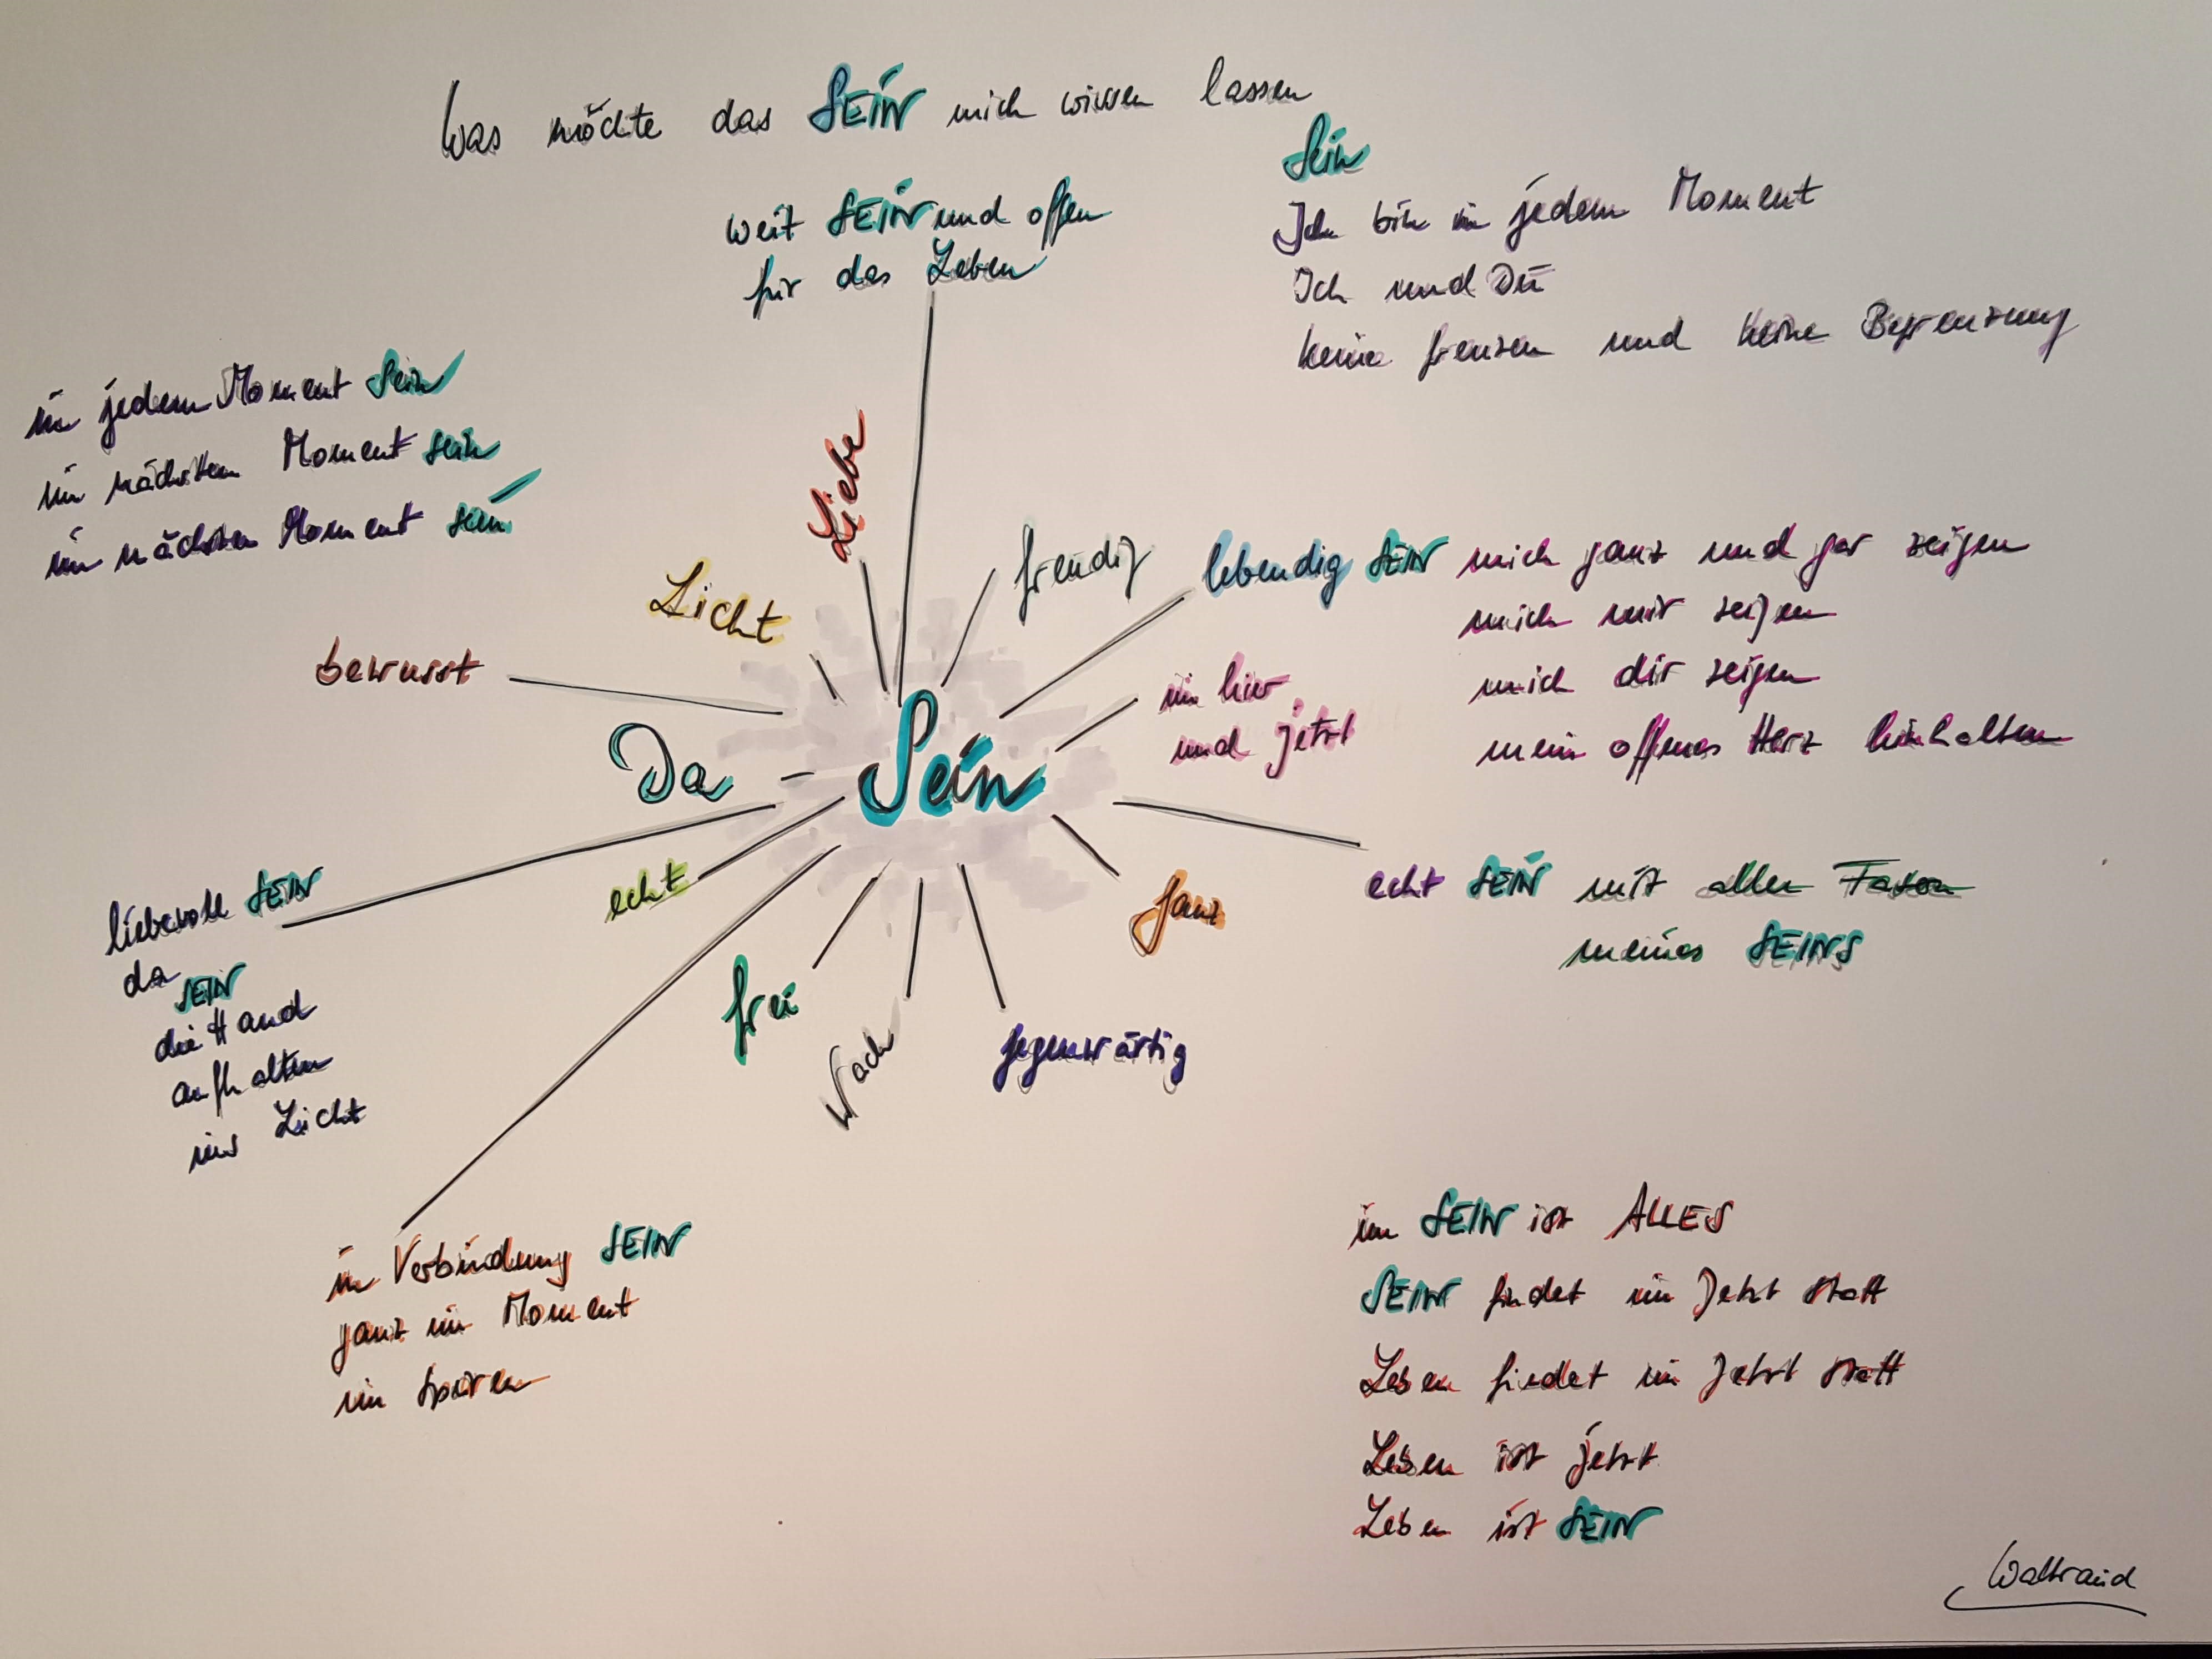 Was möchte das SEIN mich wissen lassen
Sein
Ich bin in jedem Moment
Ich und Du
keine Grenzen und keine Begrenzung
weit SEIN und offen
für das Leben
in jedem Moment Sein
im nächsten Moment sein
im nächsten Moment sein
Liebe
freudig
Licht
lebendig SEIN mich ganz und gar zeigen
mich mir zeigen
mich dir zeigen
mein offenes Herz hinhalten
bewusst
im hier
und jetzt
Da
Sein
echt
ganz
echt SEIN mit allen
meines SEINS
liebevoll SEIN
da
SEIN
die Hand
aufhalten
ins Licht
frei
Wach
gegenwärtig
in Verbindung SEIN
ganz im Moment
im Spüren
im SEIN ist ALLES
SEIN findet im Jetzt statt
Leben findet im Jetzt statt
Leben ist jetzt
Leben ist SEIN
Waltraud